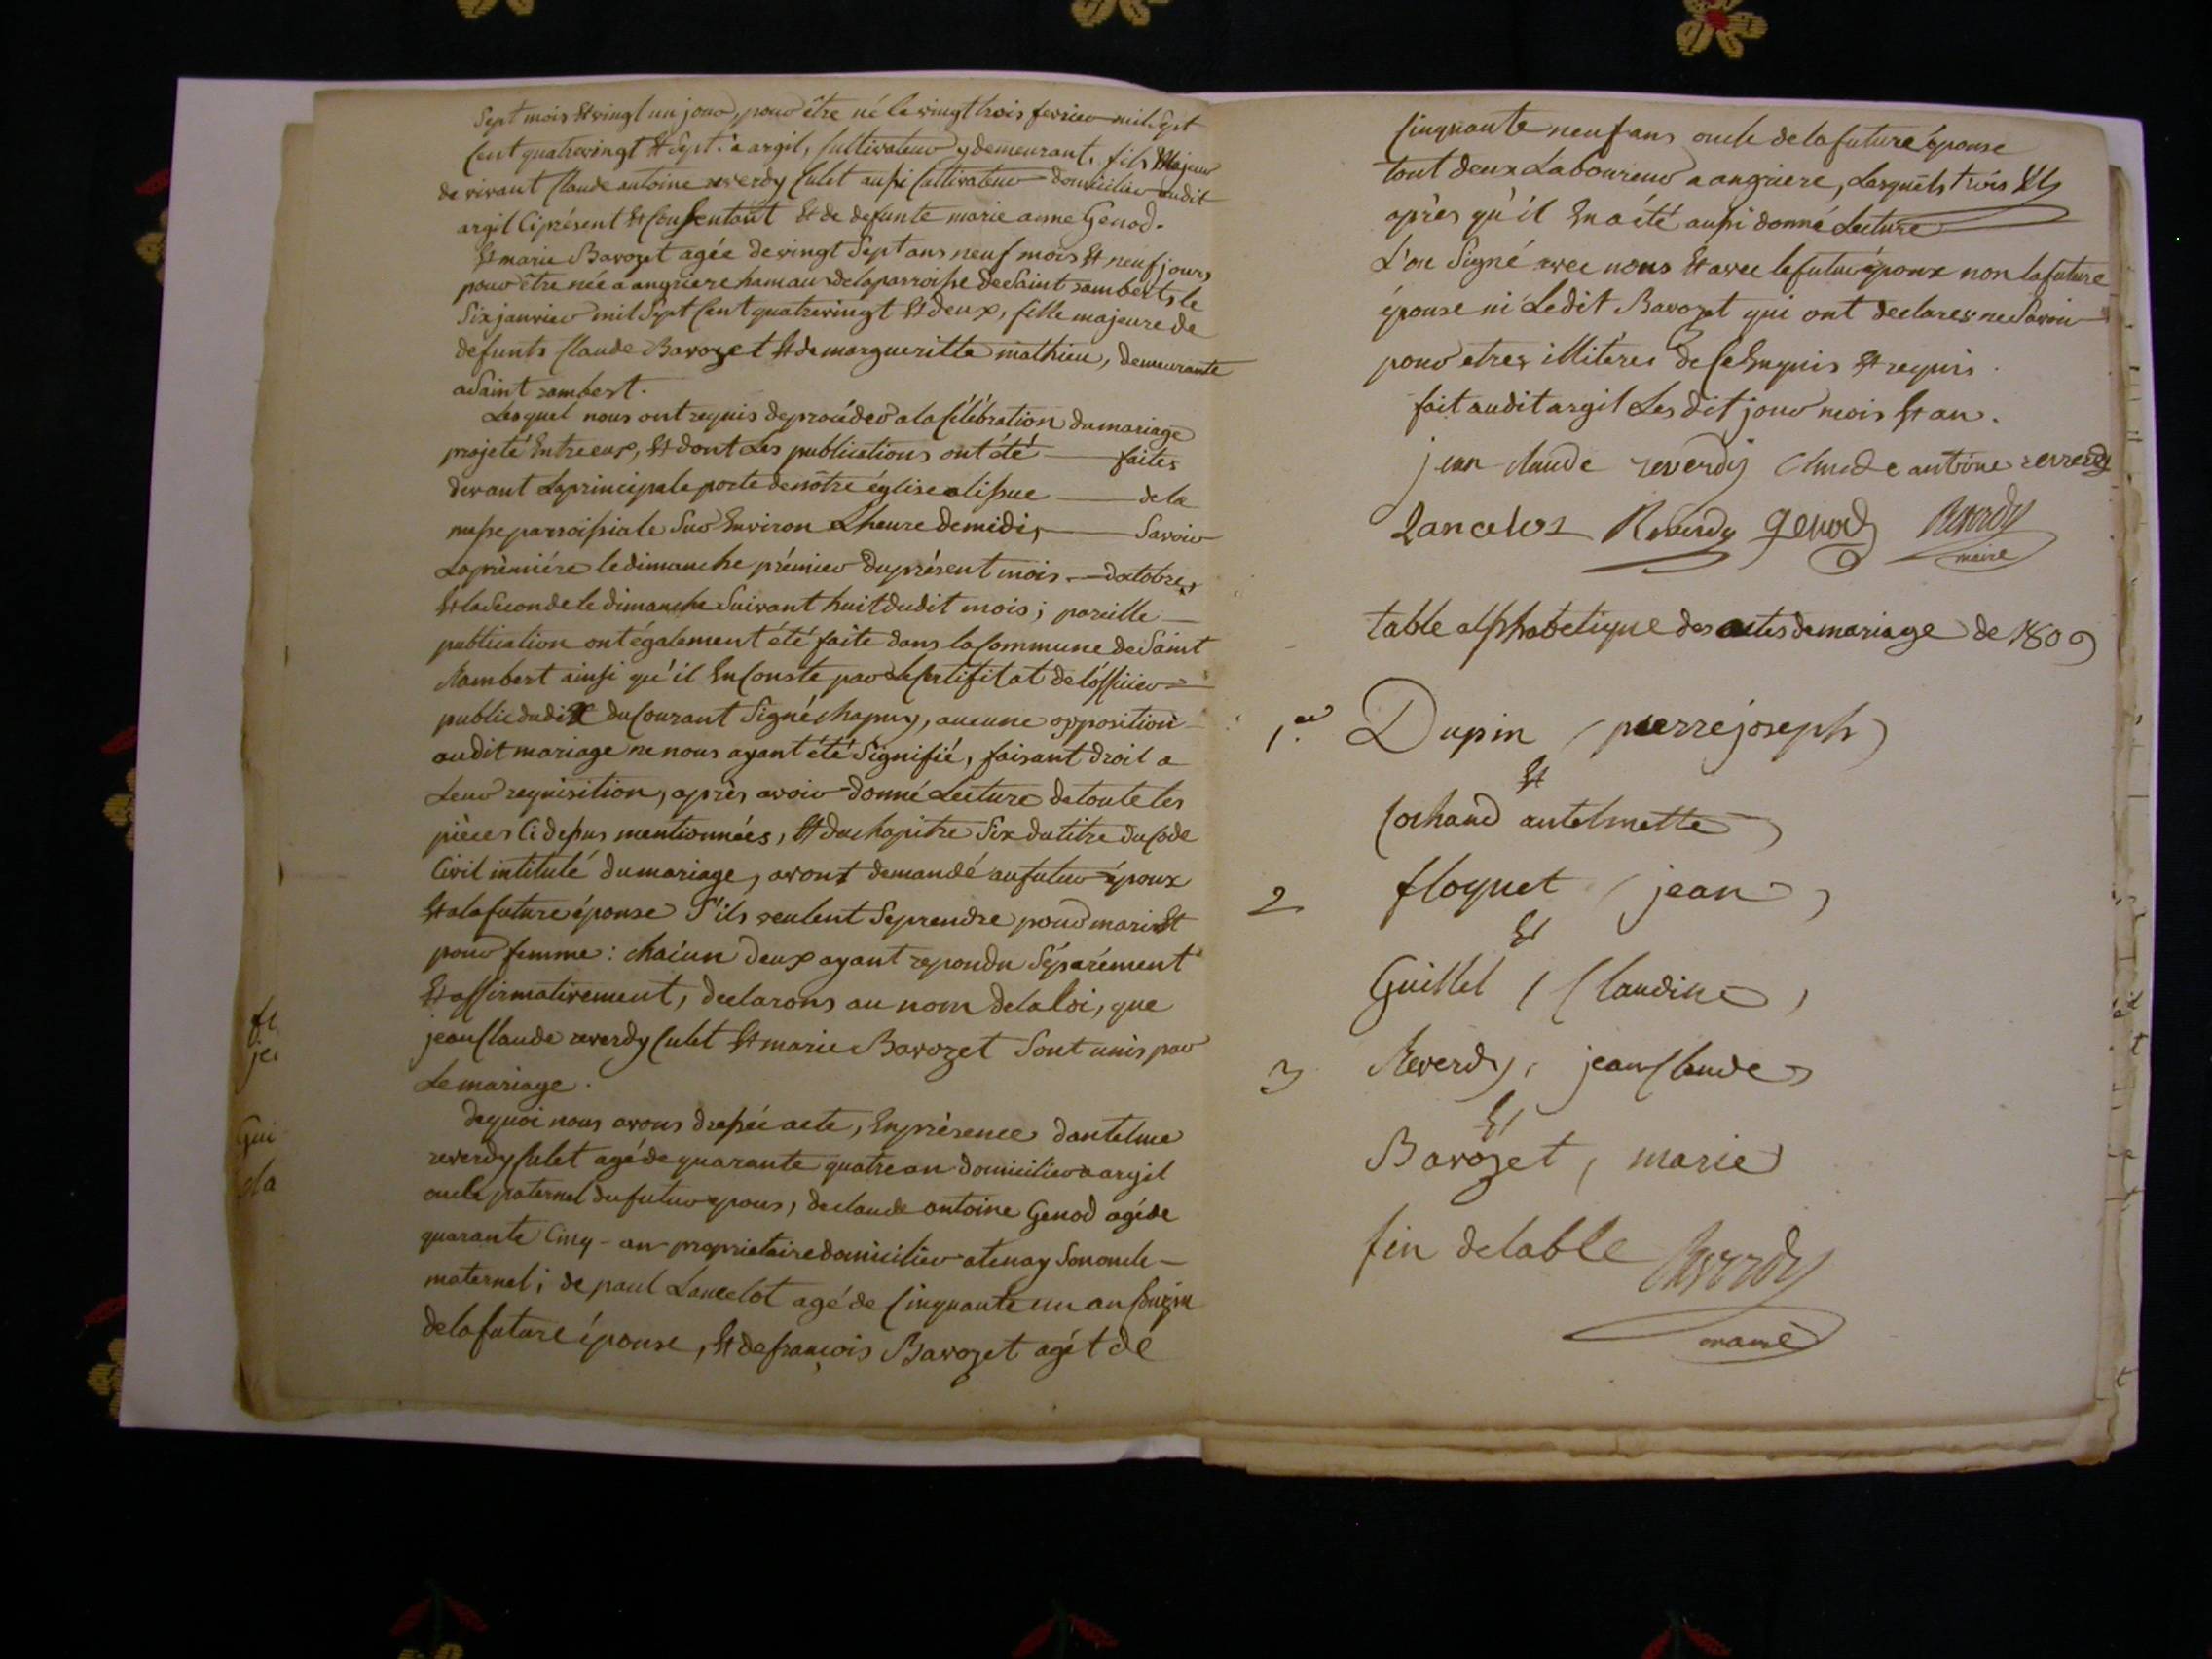 Sept mois et vingt un jour, pour être né le vingt trois fevrier mil Sept
Cent quatrevingt et Sept. a argil, Cultivateur y demeurant, fils Majeur
de vivant Claude antoine reverdy Culet aussi Cultivateur domicilier audit
argil Ciprésent et Consentant et de defunte marie anne Genod.
et marie Bavozet agée de vingt Sept ans neuf mois et neuf jours
pour être née a angriere hamau de la parroisse de Saint rambert, le
Six janvier mil Sept Cent quatrevingt et deux, fille majeure de
defunts Claude Bavozet et de margueritte mathieu, demeurante
a Saint rambert.
Lesquel nous ont requis de procéder a la Célébration du mariage
projeté Entre eux, et dont Les publications ont été faites
devant La principale porte de nôtre église a lissue de la
messe parroissiale Sur Environ L'heure de midi, Savoir
La prèmiére le dimanche prémier du présent mois d'octobre,
et la Seconde le dimanche Suivant huit dudit mois; pareille
publication ont également été faite dans la Commune de Saint
Rambert ainsi qu'il En Conste par Le Certifitat de l'officier
public dudit du Courant Signé Chapuy, aucune opposition
audit mariage ne nous ayant été Signifié, faisant droit a
Leur requisition, après avoir donné Lecture de toute les
pièces Ci dessus mentionnées, et du chapitre Six du titre du Code
Civil intitulé du mariage, avont demandé au futur époux
et a la future épouse S'ils veulent Se prendre pour mari et
pour femme: chaiun deux ayant repondu Séparément
et affirmativement, declarons au nom de la Loi, que
jean Claude reverdy Culet et marie Bavozet Sont unis par
Le mariage.
de quoi nous avons dressée acte, En présence dantelme
reverdy Culet agé de quarante quatre an domicilier a argil
oncle paternel du futur epous, de claude antoine Genod agé de
quarante Cinq an proprietaire domicilier a tenay Son oncle
maternel; de paul Lancelot agé de Cinquante un an Cousin
de la future épouse, et de françois Bavozet agét de
Cinquante neuf ans oncle de la future épouse
tout deux Laboureur a angriere, Lesquels trois
après qu'il En a été aussi donné Lecture
L'on Signé avec nous et avec le futur époux non la future
épouse ni Ledit Bavozet qui ont declarer ne Savoir
pour etres illiteres de Ce Enquis et requis.
fait audit argil Les dit jour mois et an.
jean claude reverdy Claude antoine reverdy
Lancelos Reverdy genod Reverdy
maire
table alphabetique des actes de mariage de 1809
1.er Dupin (pierre joseph)
et
Cochand antelmette
2 floquet (jean)
et
Guillel (Claudine)
3 Reverdy, jean Claude
et
Bavozet, marie
fin de table Reverdy
maire
fl
jea
Gui
cla